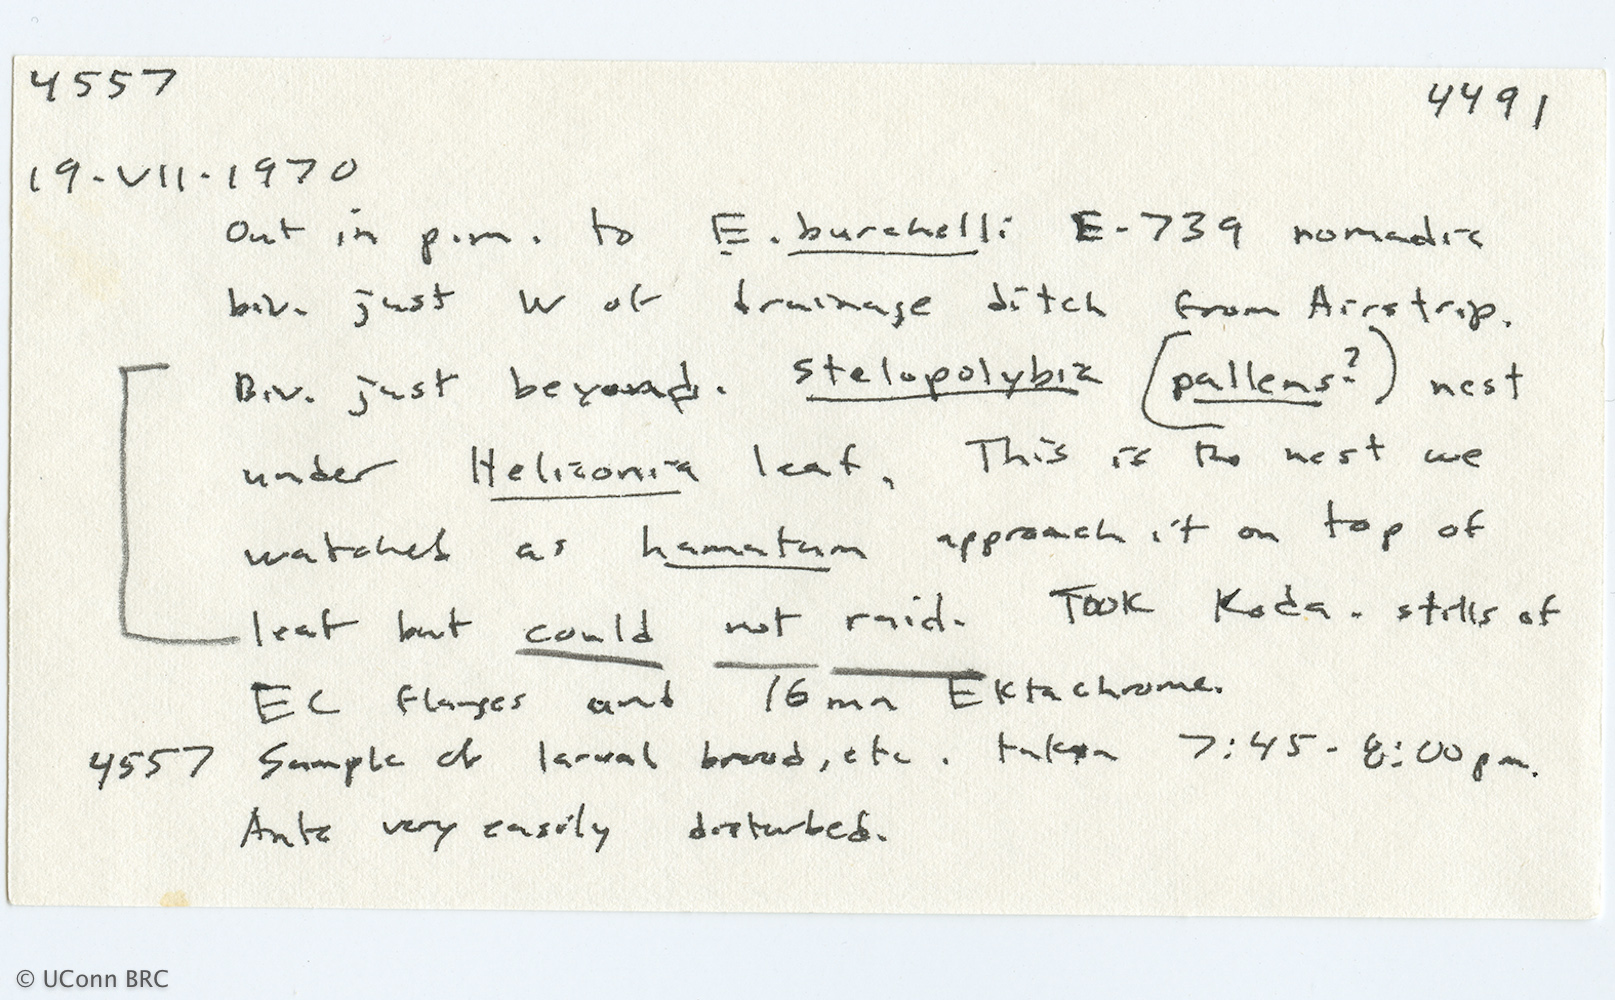 4557 4491
19-VII-1970
Out in p.m. to E. burchelli E-739 nomadic
biv. just W of drainage ditch from Airstrip.
Biv. just beyond. Stelopolybia (pallens?) nest
under Heliconia leaf. This is the nest we
watched as hamatum approach it on top of
leaf but could not raid. Took Koda. stills of
EC flanges and 16 mm Ektachrome.
4557 Sample of larval brood, etc. taken 7:45-8:00 pm.
Ants very easily disturbed.
© UConn BRC